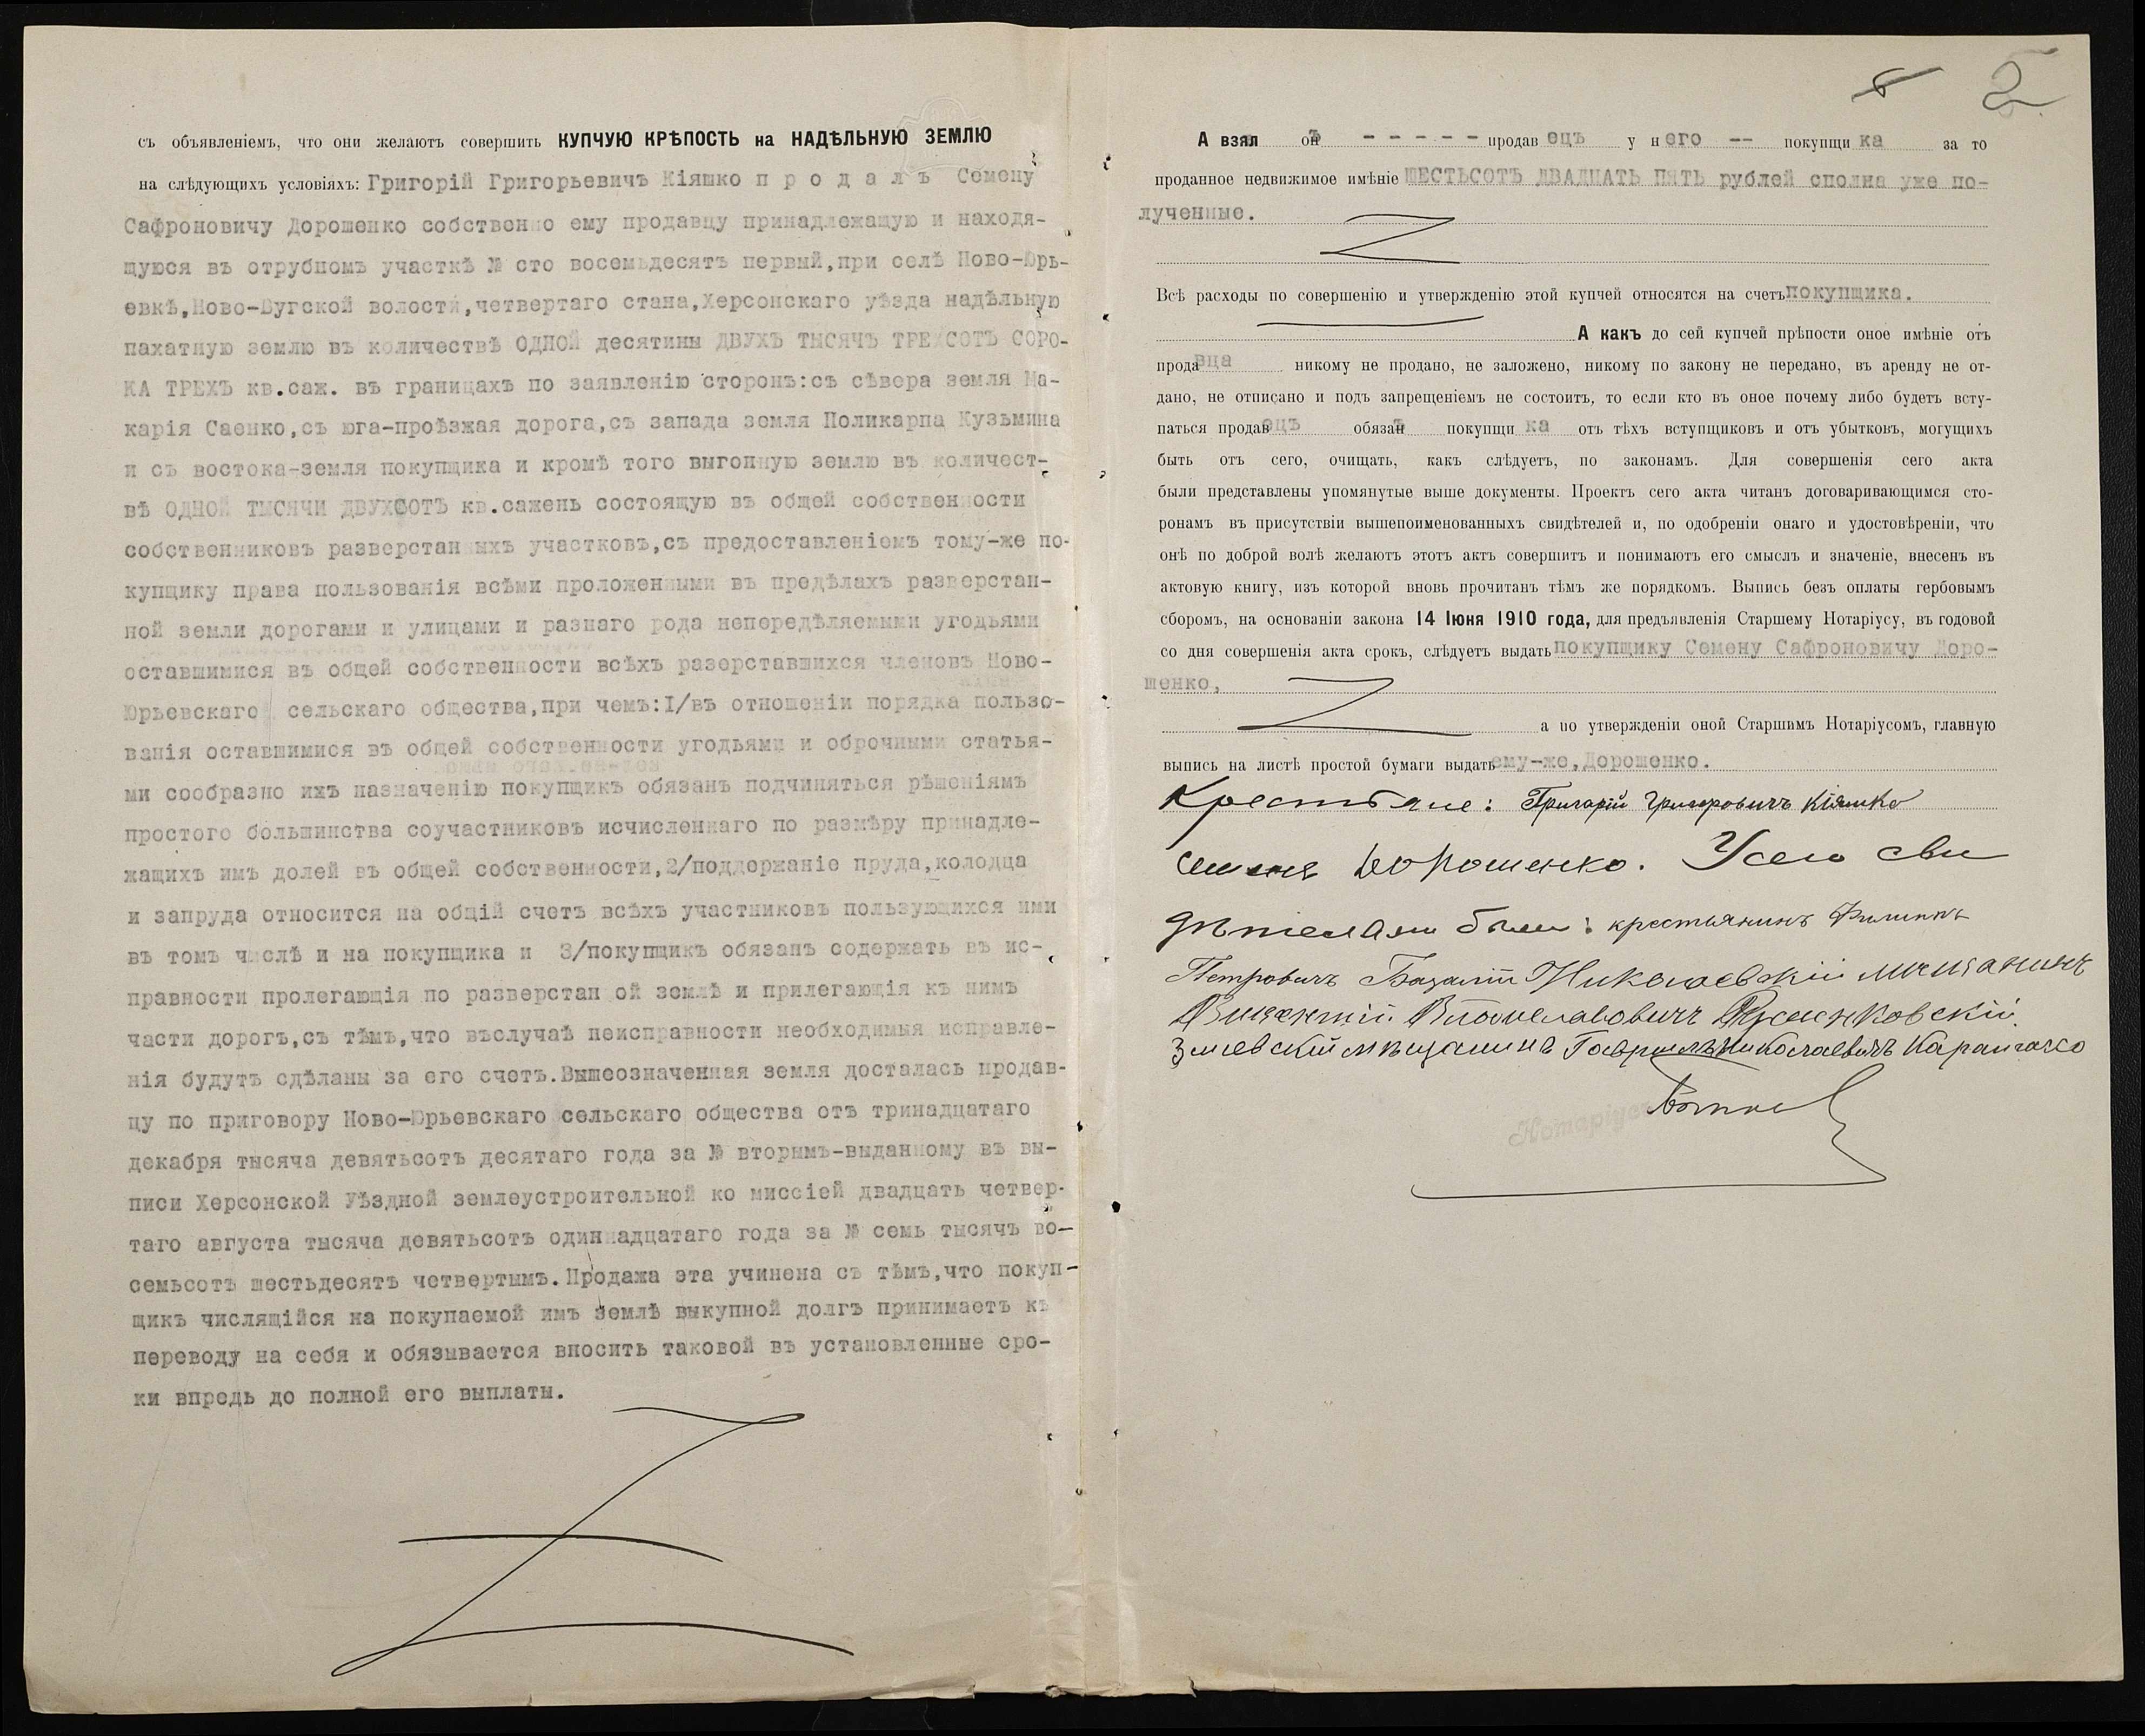 съ объявленіемъ, что они желаютъ совершить КУПЧУЮ КРѢПОСТЬ на НАДѢЛЬНУЮ ЗЕМЛЮ
на слѣдующихъ условіяхъ: Григорій Григорьевичъ Кіяшко п р о д а л ъ Семену
Сафроновичу Дорошенко собственно ему продавцу принадлежащую и находя-
щуюся въ отрубномъ участкѣ № сто восемьдесятъ первый,при селѣ Ново-Юрь-
евкѣ,Ново-Бугской волости,четвертаго стана,Херсонскаго уѣзда надѣльную
пахатную землю въ количествѣ ОДНОЙ десятины ДВУХЪ ТЫСЯЧЪ ТРЕХСОТЪ СОРО-
КА ТРЕХЪ кв.саж. въ границахъ по заявленію сторонъ:съ сѣвера земля Ма-
карія Саенко,съ юга-проѣзжая дорога,съ запада земля Поликарпа Кузьмина
и съ востока-земля покупщика и кромѣ того выгонную землю въ количест-
вѣ ОДНОЙ ТЫСЯЧИ ДВУХСОТЪ кв.сажень состоящую въ общей собственности
собственниковъ разверстанныхъ участковъ,съ предоставленіемъ тому-же по-
купщику права пользованія всѣми проложенными въ предѣлахъ разверстан-
ной земли дорогами и улицами и разнаго рода непередѣляемыми угодьями
оставшимися въ общей собственности всѣхъ разерставшихся членовъ Ново-
Юрьевскаго сельскаго общества,при чемъ:I/въ отношеніи порядка пользо-
ванія оставшимися въ общей собственности угодьями и оброчными статья-
ми сообразно ихъ назначенію покупщикъ обязанъ подчиняться рѣшеніямъ
простого большинства соучастниковъ исчисленнаго по размѣру принадле-
жащихъ имъ долей въ общей собственности,2/поддержаніе пруда,колодца
и запруда относится на общій счетъ всѣхъ участниковъ пользующихся ими
въ томъ числѣ и на покупщика и 3/покупщикъ обязанъ содержать въ ис-
правности пролегающія по разверстан ой землѣ и прилегающія къ нимъ
части дорогъ,съ тѣмъ,что въслучаѣ неисправности необходимыя исправле-
нія будутъ сдѣланы за его счетъ.Вышеозначенная земля досталась продав-
цу по приговору Ново-Юрьевскаго сельскаго общества отъ тринадцатаго
декабря тысяча девятьсотъ десятаго года за № вторымъ-выданному въ вы-
писи Херсонской Уѣздной землеустроительной ко миссіей двадцать четвер-
таго августа тысяча девятьсотъ одиннадцатаго года за № семь тысячъ во-
семьсотъ шестьдесятъ четвертымъ.Продажа эта учинена съ тѣмъ,что покуп-
щикъ числящійся на покупаемой имъ землѣ выкупной долгъ принимаетъ къ
переводу на себя и обязывается вносить таковой въ установленные сро-
ки впредь до полной его выплаты.
5
А взял онъ - - - - - продав ецъ у н его -- покупщи ка за то
проданное недвижимое имѣніе ШЕСТЬСОТЪ ДВАДЦАТЬ ПЯТЬ рублей сполна уже по-
лученные.
Всѣ расходы по совершенію и утвержденію этой купчей относятся на счетъ покупщика.
А какъ до сей купчей прѣпости оное имѣніе отъ
продавца никому не продано, не заложено, никому по закону не передано, въ аренду не от-
дано, не отписано и подъ запрещеніемъ не состоитъ, то если кто въ оное почему либо будетъ всту-
паться продавецъ обязанъ покупщи ка отъ тѣхъ вступщиковъ и отъ убытковъ, могущихъ
быть отъ сего, очищать, какъ слѣдуетъ, по законамъ. Для совершенія сего акта
были представлены упомянутые выше документы. Проектъ сего акта читанъ договаривающимся сто-
ронамъ въ присутствіи вышепоименованныхъ свидѣтелей и, по одобреніи онаго и удостовѣреніи, что
онѣ по доброй волѣ желаютъ этотъ актъ совершить и понимаютъ его смыслъ и значеніе, внесенъ въ
актовую книгу, изъ которой вновь прочитанъ тѣмъ же порядкомъ. Выпись безъ оплаты гербовымъ
сборомъ, на основаніи закона 14 Іюня 1910 года, для предъявленія Старшему Нотаріусу, въ годовой
со дня совершенія акта срокъ, слѣдуетъ выдать покупщику Семену Сафроновичу Доро-
шенко,
а по утвержденіи оной Старшимъ Нотаріусомъ, главную
выпись на листѣ простой бумаги выдать ему-же,Дорошенко.
Крестьяне: Григорій Григоровичъ Кіяшко
Дорошенко. Усего сви
дѣтелями были: крестьянинъ Филиппъ
Петровичъ Николаевскій мещанинъ
Викентій
Змевскій мѣщанинъ Гавріилъ Николаевичъ
Нотаріусъ